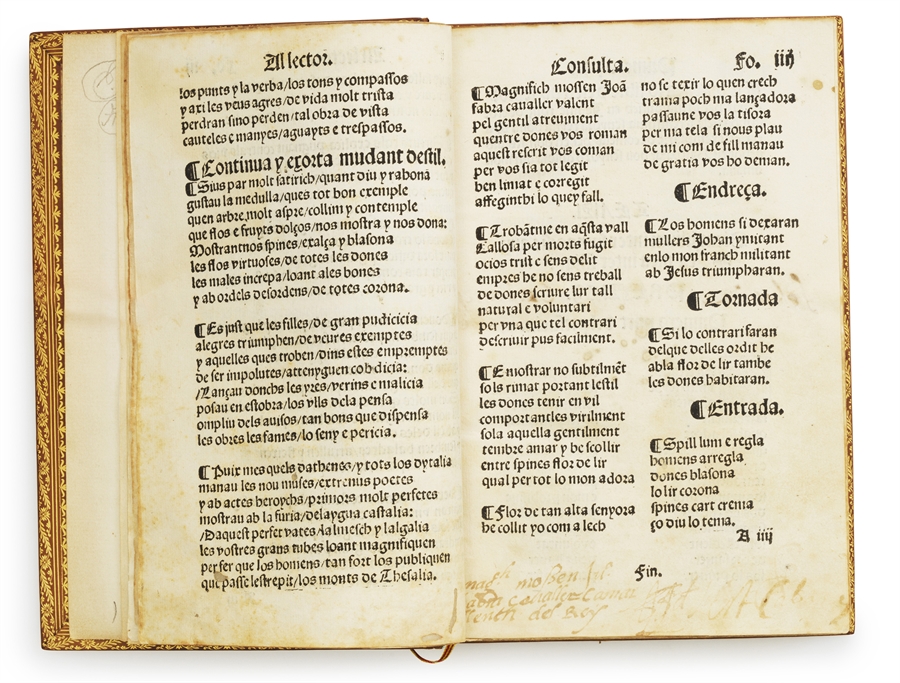 Al lector.
los punts y la verba/los tons y compassos
y axi les veus agres/de vida molt trista
perdran sino perden/tal obra de vista
cauteles e manyes/aguayts e trespassos.
¶Continua y exorta mudant destil.
¶Sius par molt satirich/quant diu y rahona
gustau la medulla/ques tot bon exemple
quen arbre molt aspre/collim y contemple
que flos e fruyts dolços/nos mostra y nos dona:
Mostrantnos spines/exalça y blasona
les flos virtuoses/de totes les dones
les males increpa/loant ales bones
y ab ordels desordens/de totes corona.
¶Es just que les filles/de gran pudicicia
alegres triumphen/de veures exemptes
y aquelles ques troben/dins estes empremptes
de ser impolutes/attenyguen cobdicia:
Lançau donchs les yres/verins e malicia
posau en estobra/los vlls dela pensa
ompliu dels auisos/tan bons que dispensa
les obres les fames/lo seny e pericia.
¶Puix mes quels dathenes/y tots los dytalia
manau les nou muses/extrenus poetes
y ab actes heroychs/primors molt perfetes
mostrau ab la furia/delaygua castalia:
Daquest perfet vates/
les vostres grans tubes loant magnifiquen
perfer que los homens/tan fort los publiquen
que passe lestrepit/los monts de Thesalia.
Consulta.
Fo. iiij
¶Magnifich mossen Joã
fabra caualler valent
pel gentil atreuiment
quentre dones vos roman
aquest rescrit vos coman
per vos sia tot legit
ben limat e corregit
affeginthi lo quey fall.
¶Trobãtme en aq̃sta vall
Callosa per morts fugit
ocios trist e sens delit
empres he no sens treball
de dones scriure lur tall
natural e voluntari
per vna que tel contrari
descriuir pus facilment.
¶E mostrar no subtilmẽt
sols rimat portant lestil
les dones tenir en vil
comportantles virilment
sola aquella gentilment
tembre amar y be scollir
entre spines flor de lir
qual per tot lo mon adora
¶Flor de tan alta senyora
he collit yo com a lech
no se texir lo quen crech
trama poch ma lançadora
passaune vos la tisora
per ma tela si nous plau
de mi com de fill manau
de gratia vos ho deman.
¶Endreça.
¶Los homens si dexaran
mullers Johan ymitant
enlo mon franch militant
ab Jesus triumpharan.
¶Tornada
¶Si lo contrari faran
delque delles ordit he
abla flor de lir tambe
les dones habitaran.
¶Entrada.
¶Spill lum e regla
homens arregla
dones blasona
lo lir corona
spines cart crema
ço diu lo tema.
A iiij
Fin.
mossen
del Rey